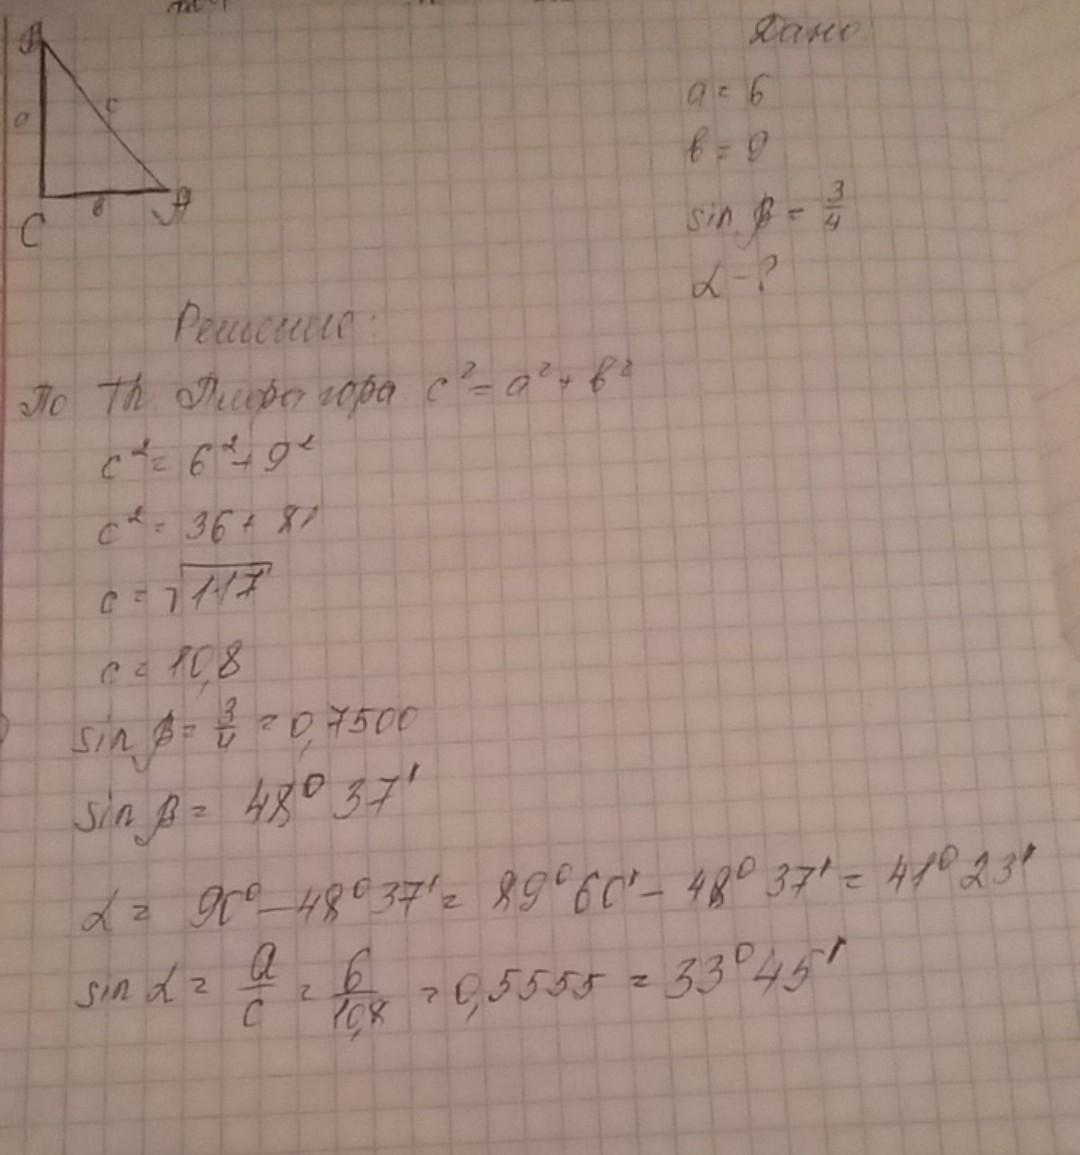 B
a
c
C
b
A
Дано
a = 6
b = 9
sin β = 3/4
α - ?
Решение:
По Th Пифагора c² = a² + b²
c² = 6² + 9²
c² = 36 + 81
c = √117
c = 10,8
sin β = 3/4 = 0,7500
sin β = 48° 37'
α = 90° - 48° 37' = 89° 60' - 48° 37' = 41° 23'
sin α = a/c = 6/10,8 = 0,5555 = 33° 45'